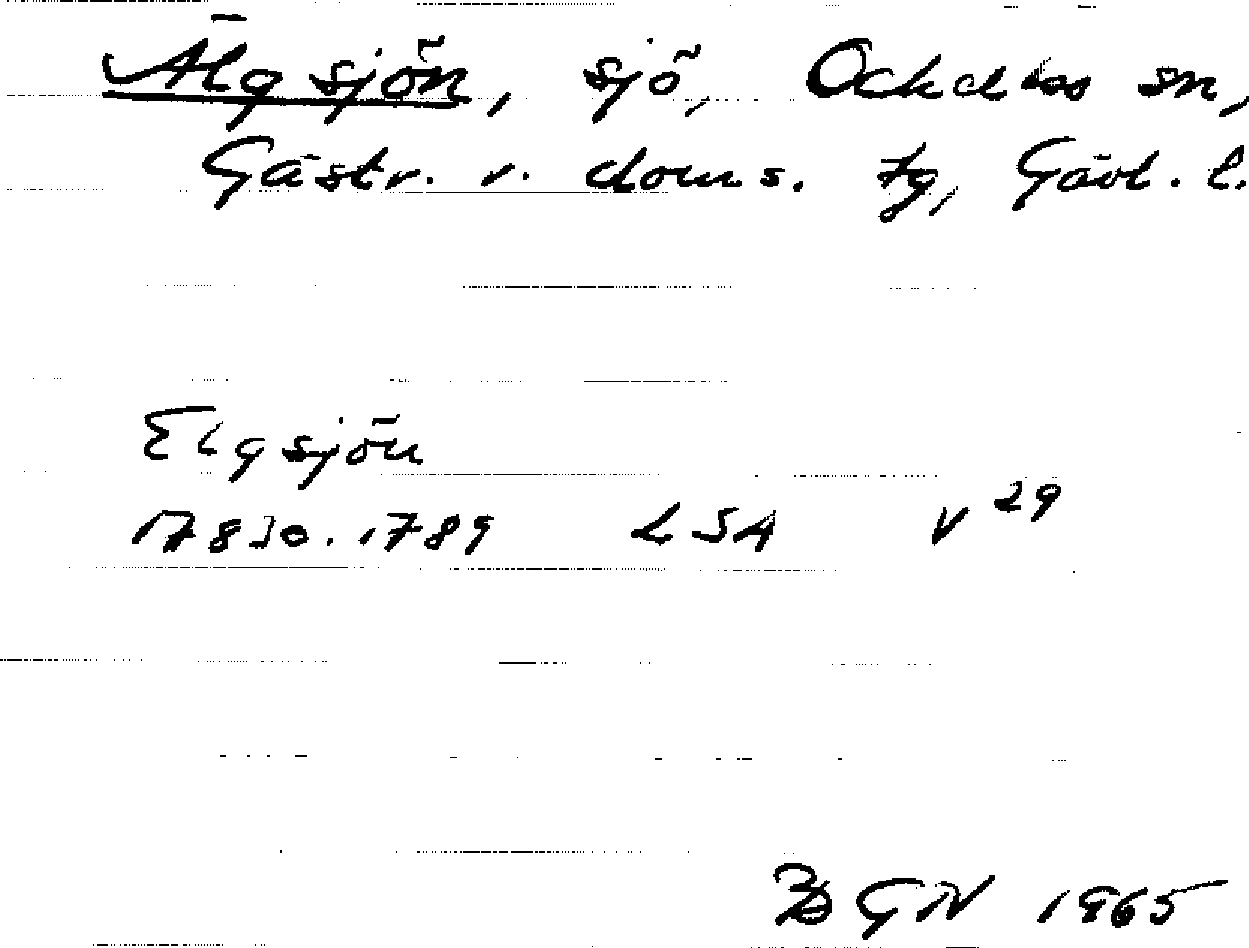 Älgsjön, sjö, Ockelbo sn,
Gästr. v. doms. tg, Gävl. l.
Elgsjön
1783o. 1789 LSA V 29
GN 1965